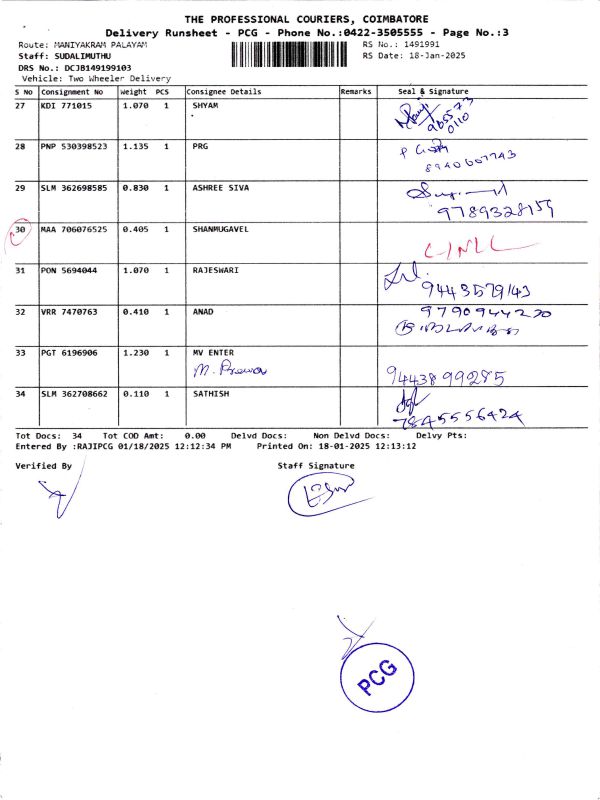 THE PROFESSIONAL COURIERS, COIMBATORE
Delivery Runsheet - PCG - Phone No.:0422-3505555 - Page No.:3
Route: MANIYAKRAM PALAYAM RS No.: 1491991
Staff: SUDALIMUTHU RS Date: 18-Jan-2025
DRS No.: DCJB149199103
Vehicle: Two Wheeler Delivery
S No Consignment No Weight PCS Consignee Details Remarks Seal & Signature
27 KDI 771015 1.070 1 SHYAM
0110
28 PNP 530398523 1.135 1 PRG
8940607743
29 SLM 362698585 0.830 1 ASHREE SIVA
9789328159
30 MAA 706076525 0.405 1 SHANMUGAVEL
31 PON 5694044 1.070 1 RAJESWARI
9443579143
32 VRR 7470763 0.410 1 ANAD
9790944220
33 PGT 6196906 1.230 1 MV ENTER
M.
9443899285
34 SLM 362708662 0.110 1 SATHISH
7845556424
Tot Docs: 34 Tot COD Amt: 0.00 Delvd Docs: Non Delvd Docs: Delvy Pts:
Entered By :RAJIPCG 01/18/2025 12:12:34 PM Printed On: 18-01-2025 12:13:12
Verified By Staff Signature
PCG